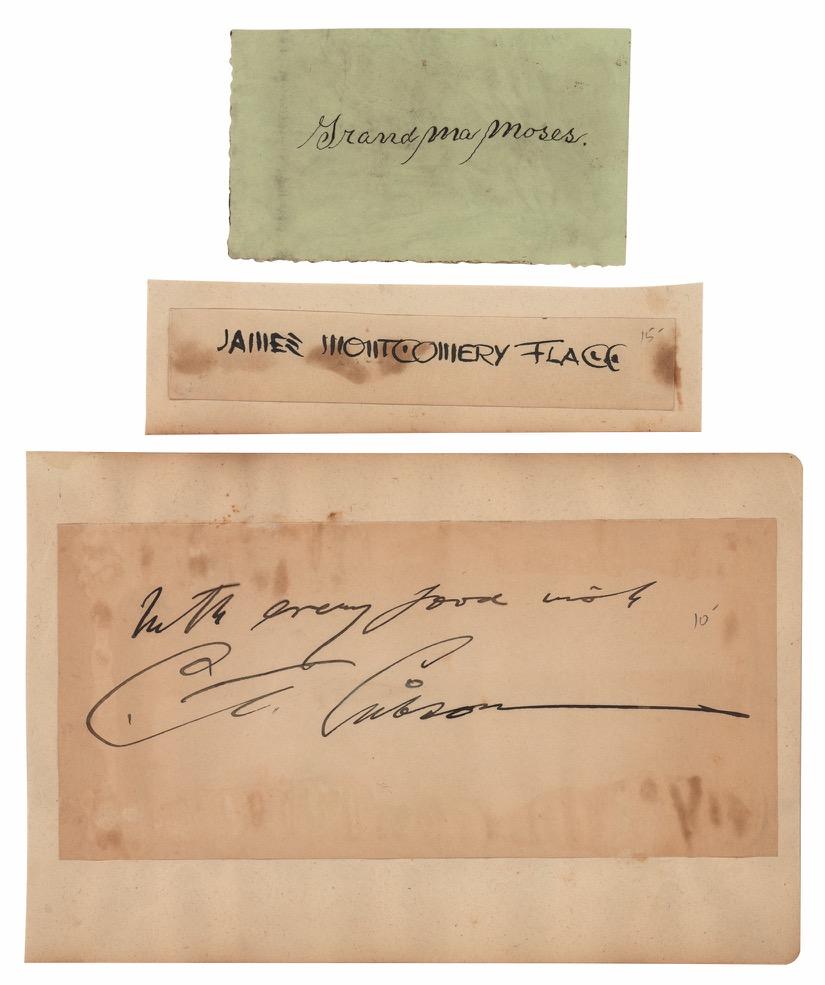 Grandma Moses.
JAMES MONTGOMERY FLAGG 15-
With every good wish
10-
C. D. Gibson